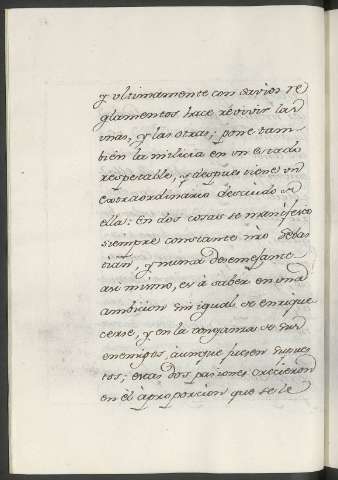 y ultimamente con savios re
glamentos hace révivir las
unas, y las otras; pone tam-
bién la milicia en un estado
respetable, y despues tiene un
extraordinario descuido de
ella: En dos cosas se manifestó
siempre constante nro Sebas
tian, y nunca desemejante
asi mismo, es à saber en una
ambicion sin igual de enrique
cerse, y en la venganza de sus
enemigos, aunque fuesen supues
tos; estas dos pasiones crecieron
en él àproporcion que se le